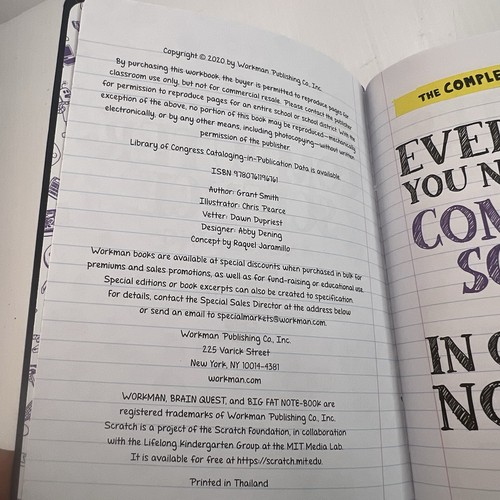 Copyright © 2020 by Workman Publishing Co., Inc.
By purchasing this workbook the buyer is permitted to reproduce pages for
classroom use only, but not for commercial resale. Please contact the publisher
for permission to reproduce pages for an entire school or school district. With the
exception of the above, no portion of this book may be reproduced—mechanically,
electronically, or by any other means, including photocopying—without written
permission of the publisher.
Library of Congress Cataloging-in-Publication Data is available.
ISBN 9780761196761
Author: Grant Smith
Illustrator: Chris Pearce
Vetter: Dawn Dupriest
Designer: Abby Dening
Concept by Raquel Jaramillo
Workman books are available at special discounts when purchased in bulk for
premiums and sales promotions, as well as for fund-raising or educational use.
Special editions or book excerpts can also be created to specification.
For details, contact the Special Sales Director at the address below
or send an email to specialmarkets@workman.com.
Workman Publishing Co., Inc.
225 Varick Street
New York, NY 10014-4381
workman.com
WORKMAN, BRAIN QUEST, and BIG FAT NOTEBOOK are
registered trademarks of Workman Publishing Co., Inc.
Scratch is a project of the Scratch Foundation, in collaboration
with the Lifelong Kindergarten Group at the MIT Media Lab.
It is available for free at https://scratch.mit.edu.
Printed in Thailand
THE COMPLE
EVE
YOU N
CO
SC
IN
NO